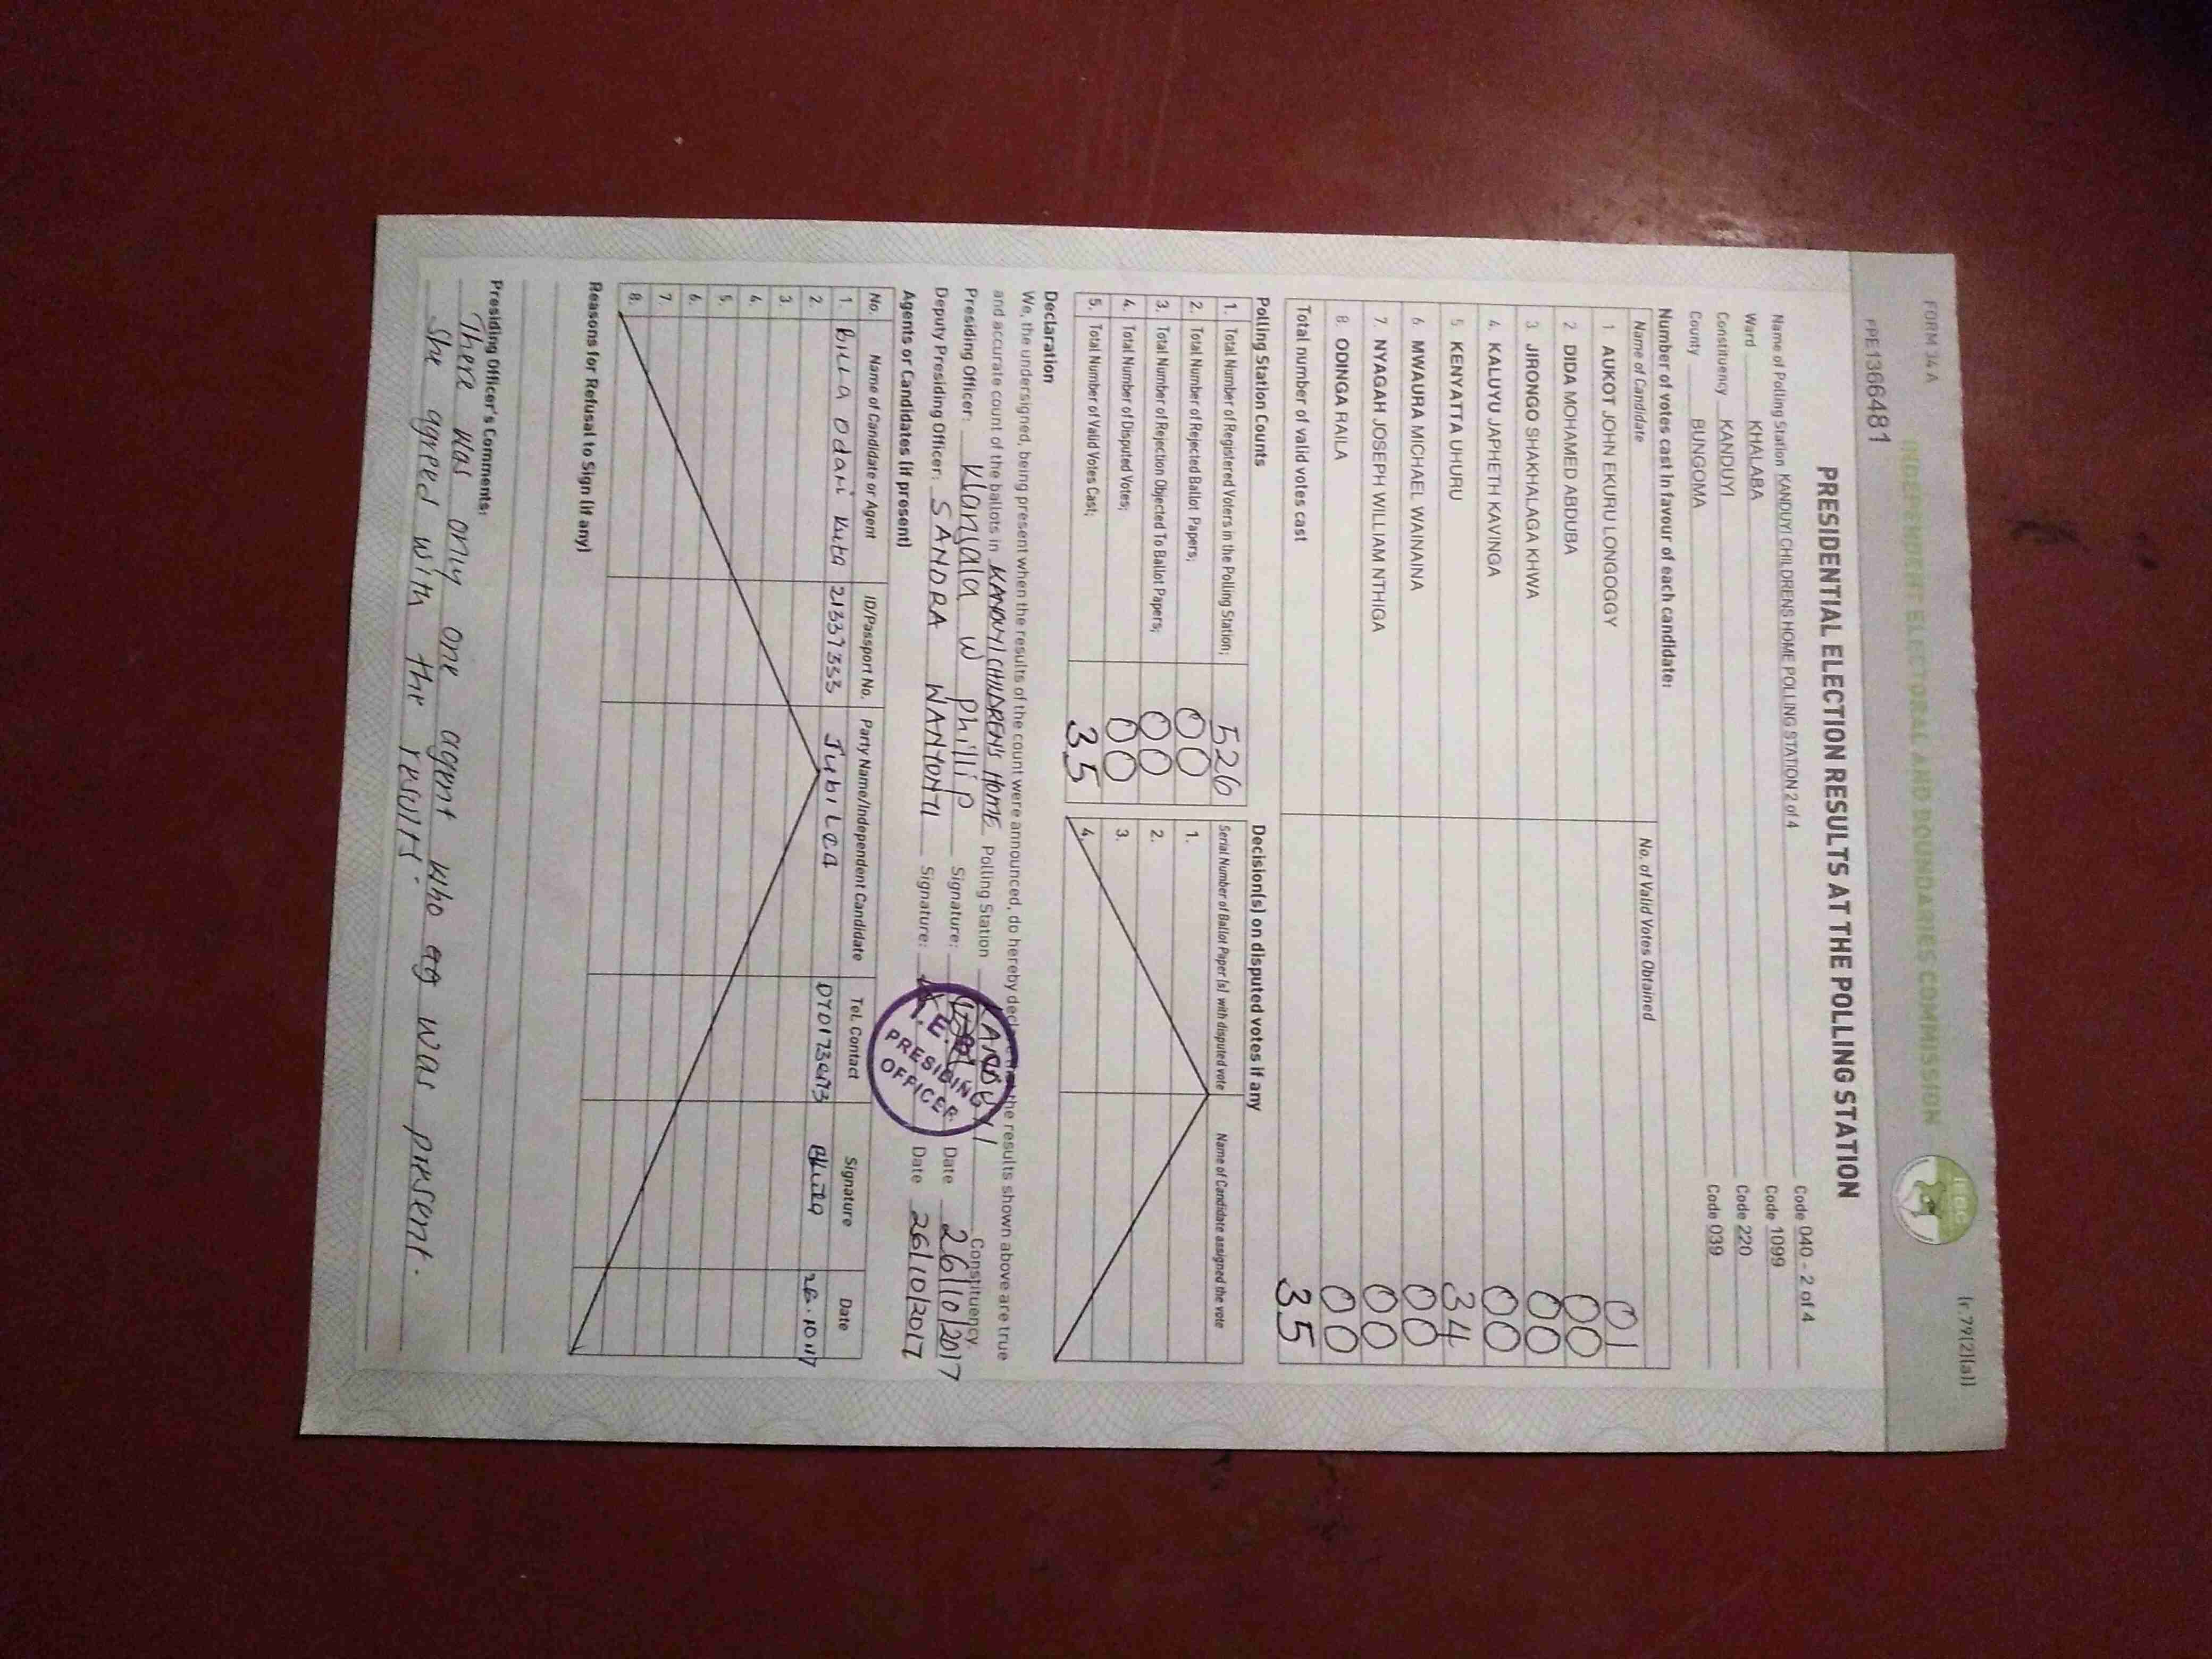 FORM 34 A
(r.79(2)(a))
INDEPENDENT ELECTORAL AND BOUNDARIES COMMISSION
IEBC
FPE1366481
PRESIDENTIAL ELECTION RESULTS AT THE POLLING STATION
Name of Polling Station KANDUYI CHILDRENS HOME POLLING STATION 2 of 4 Code 040 - 2 of 4
Ward KHALABA Code 1099
Constituency KANDUYI Code 220
County BUNGOMA Code 039
Number of votes cast in favour of each candidate:
Name of Candidate No. of Valid Votes Obtained
1 AUKOT JOHN EKURU LONGOGGY 01
2 DIDA MOHAMED ABDUBA 00
3 JIRONGO SHAKHALAGA KHWA 00
4. KALUYU JAPHETH KAVINGA 00
5. KENYATTA UHURU 34
6 MWAURA MICHAEL WAINAINA 00
7. NYAGAH JOSEPH WILLIAM NTHIGA 00
8. ODINGA RAILA 00
Total number of valid votes cast 35
Polling Station Counts
1. Total Number of Registered Voters in the Polling Station; 526
2. Total Number of Rejected Ballot Papers; 00
3. Total Number of Rejection Objected To Ballot Papers; 00
4. Total Number of Disputed Votes; 00
5. Total Number of Valid Votes Cast; 35
Decision(s) on disputed votes if any
Serial Number of Ballot Paper(s) with disputed vote Name of Candidate assigned the vote
1.
2.
3.
4.
Declaration
We, the undersigned, being present when the results of the count were announced, do hereby declare that the results shown above are true
and accurate count of the ballots in KANDUYI CHILDREN'S HOME Polling Station KANDUYI Constituency.
Presiding Officer: Wanjala W Phillip Signature: Date 26/10/2017
Deputy Presiding Officer: SANDRA WANYONYI Signature: Date 26/10/2017
I.E.B.C
PRESIDING
OFFICER
Agents or Candidates (if present)
No. Name of Candidate or Agent ID/Passport No. Party Name/Independent Candidate Tel. Contact Signature Date
1. Odari Kuta 21337333 Jubilee
2.
3.
4.
5.
6.
7.
8.
Reasons for Refusal to Sign (if any)
Presiding Officer's Comments:
There was only one agent who was present.
She agreed with the results.